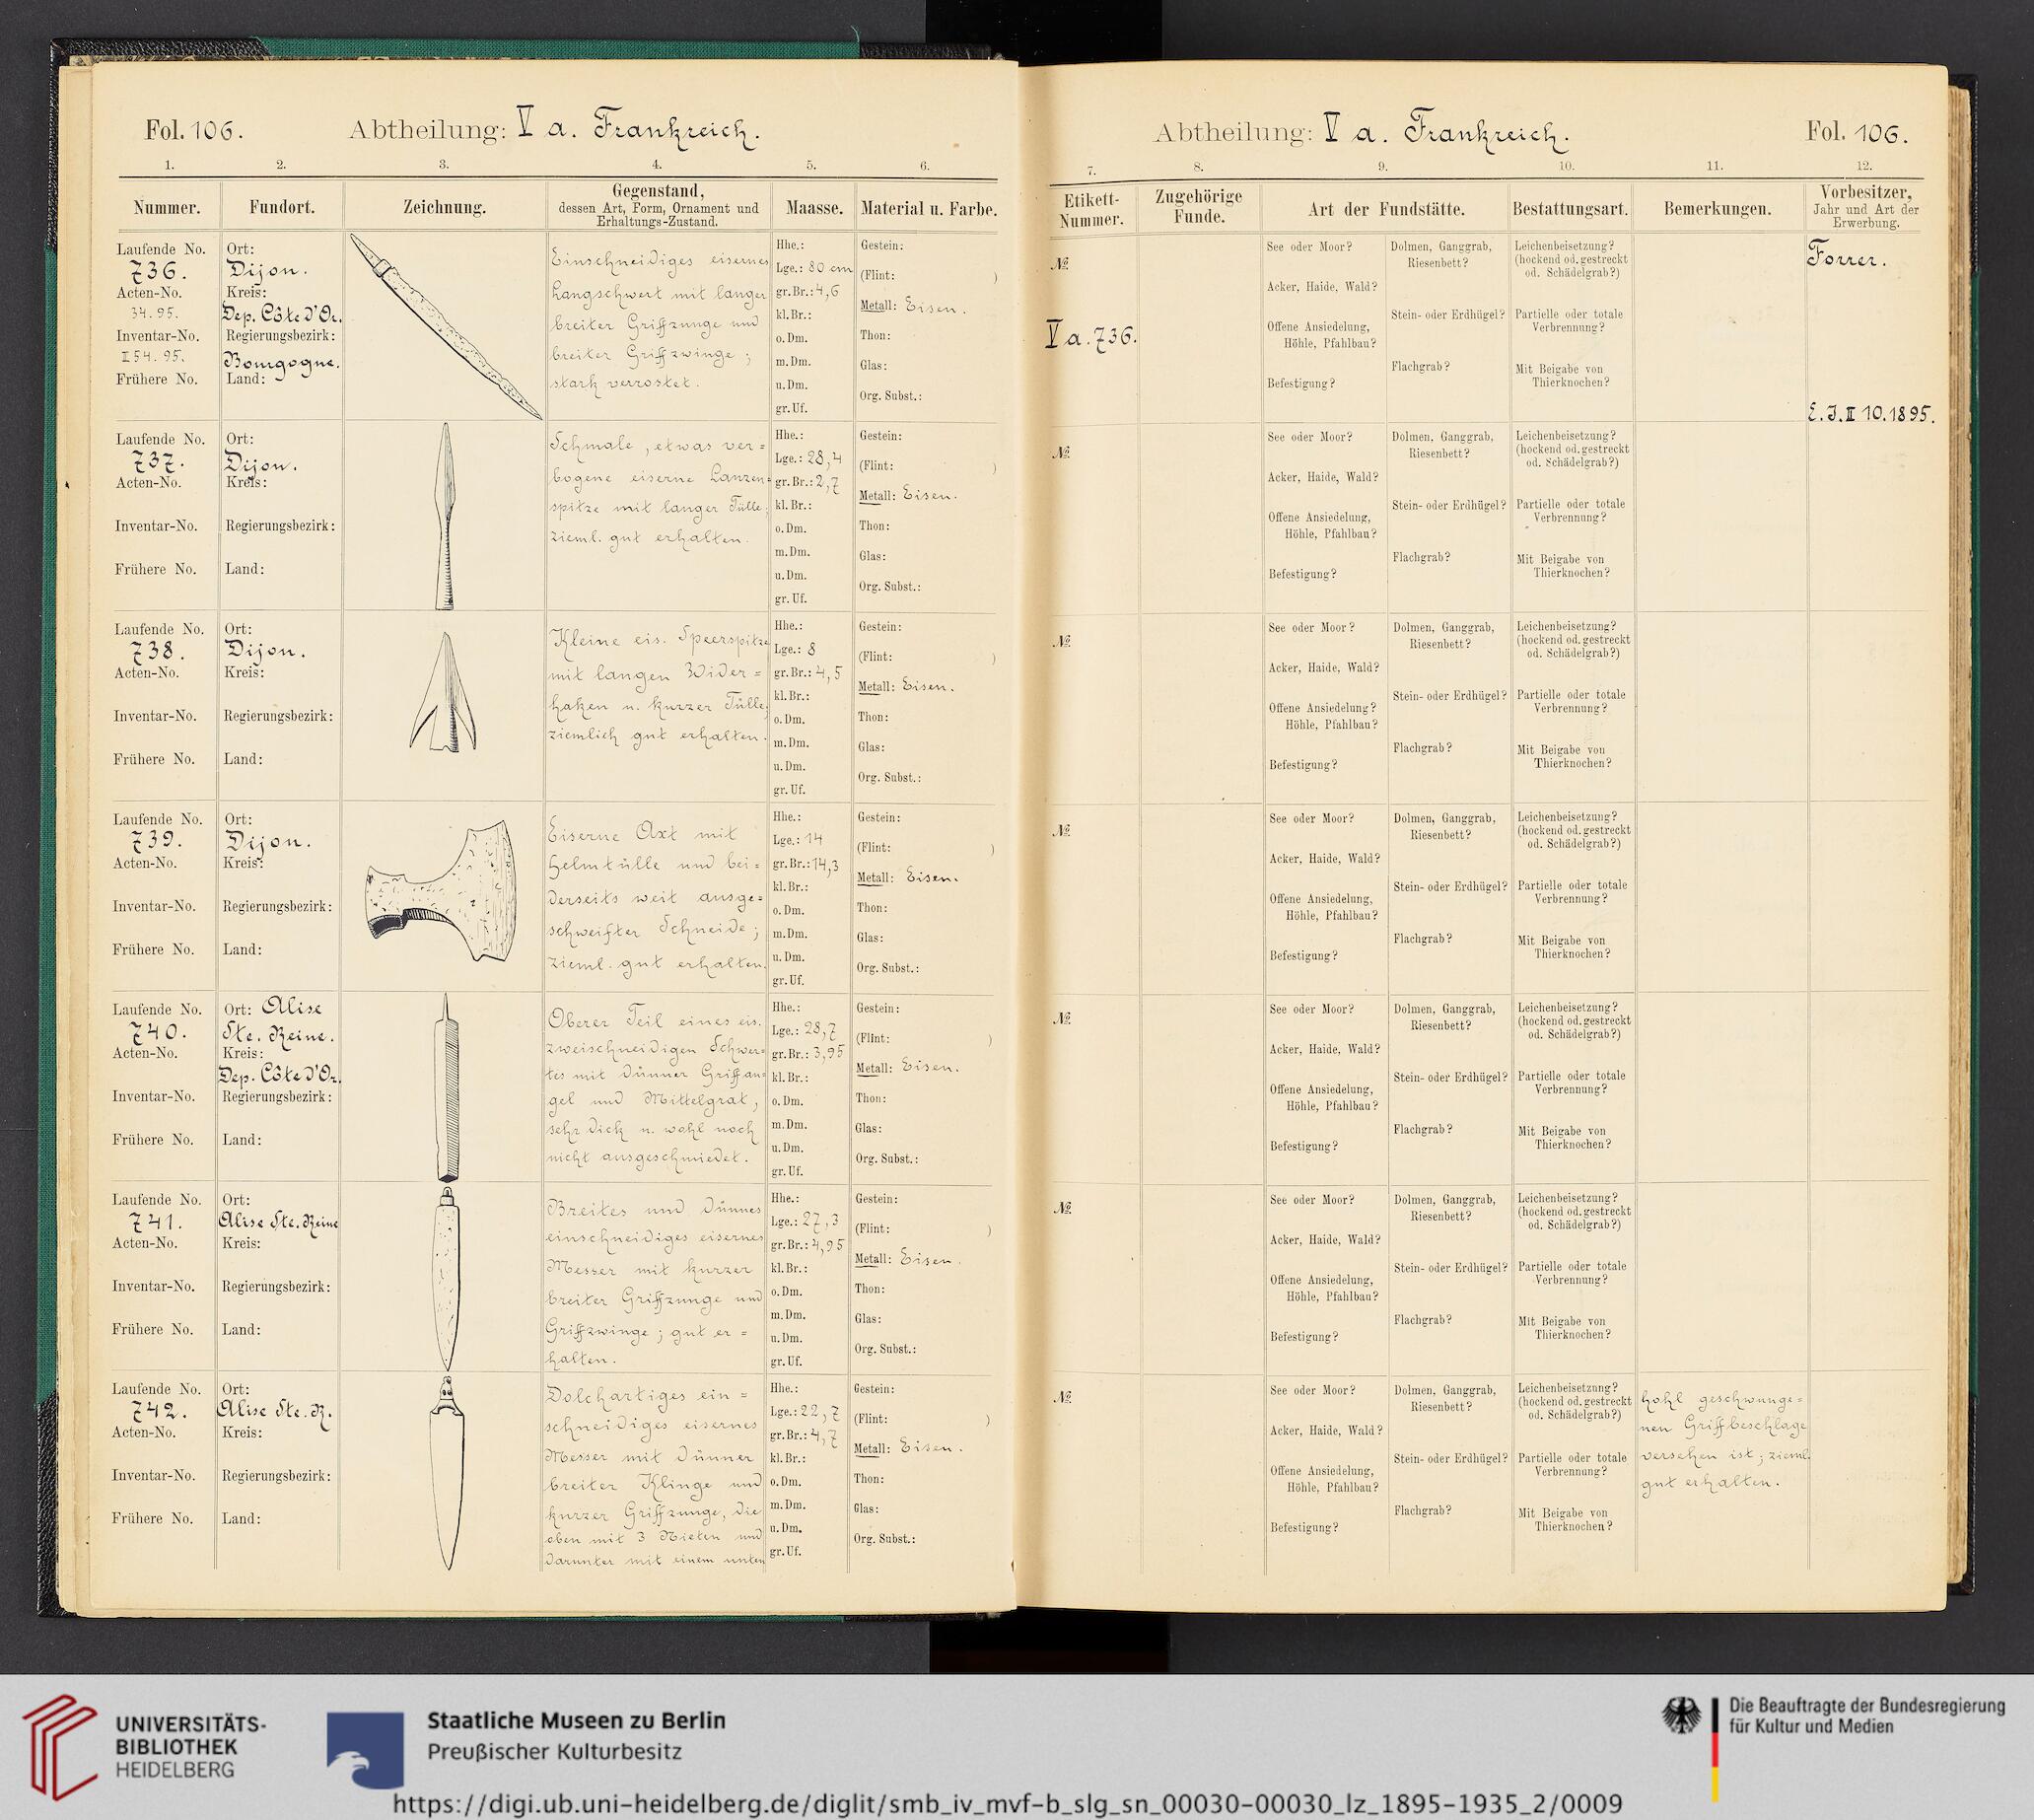 Fol. 106.
Abtheilung: V a. Frankreich.
1. 2. 3. 4. 5. 6.
Nummer.
Fundort.
Zeichnung.
Gegenstand,
dessen Art, Form, Ornament und
Erhaltungs-Zustand.
Maasse.
Material u. Farbe.
Laufende No.
736.
Acten-No.
34. 95.
Inventar-No.
II 54. 95.
Frühere No.
Ort:
Dijon.
Kreis:
Dep. Côte d'Or.
Regierungsbezirk:
Bourgogne.
Land:
Einschneidiges eisernes
Langschwert mit langer
breiter Griffzunge und
breiter Griffzwinge;
stark verrostet.
Hhe.:
Lge.: 80 cm
gr. Br.: 4,6
kl. Br.:
o. Dm.
m. Dm.
u. Dm.
gr. Uf.
Gestein:
(Flint: )
Metall: Eisen.
Thon:
Glas:
Org. Subst.:
Laufende No.
737.
Acten-No.
Inventar-No.
Frühere No.
Ort:
Dijon.
Kreis:
Regierungsbezirk:
Land:
Schmale, etwas ver=
bogene eiserne Lanzen=
spitze mit langer Tülle;
zieml. gut erhalten.
Hhe.:
Lge.: 28,4
gr. Br.: 2,7
kl. Br.:
o. Dm.
m. Dm.
u. Dm.
gr. Uf.
Gestein:
(Flint: )
Metall: Eisen.
Thon:
Glas:
Org. Subst.:
Laufende No.
738.
Acten-No.
Inventar-No.
Frühere No.
Ort:
Dijon.
Kreis:
Regierungsbezirk:
Land:
Kleine eis. Speerspitze
mit langen Wider=
haken u. kurzer Tülle;
ziemlich gut erhalten.
Hhe.:
Lge.: 8
gr. Br.: 4,5
kl. Br.:
o. Dm.
m. Dm.
u. Dm.
gr. Uf.
Gestein:
(Flint: )
Metall: Eisen.
Thon:
Glas:
Org. Subst.:
Laufende No.
739.
Acten-No.
Inventar-No.
Frühere No.
Ort:
Dijon.
Kreis:
Regierungsbezirk:
Land:
Eiserne Axt mit
Helmtülle und bei=
derseits weit ausge=
schweifter Schneide;
zieml. gut erhalten.
Hhe.:
Lge.: 14
gr. Br.: 14,3
kl. Br.:
o. Dm.
m. Dm.
u. Dm.
gr. Uf.
Gestein:
(Flint: )
Metall: Eisen.
Thon:
Glas:
Org. Subst.:
Laufende No.
740.
Acten-No.
Inventar-No.
Frühere No.
Ort: Alise
Ste. Reine.
Kreis:
Dep. Côte d'Or.
Regierungsbezirk:
Land:
Oberer Teil eines eis.
zweischneidigen Schwer=
tes mit dünner Griffan=
gel und Mittelgrat,
sehr dick u. wohl noch
nicht ausgeschmiedet.
Hhe.:
Lge.: 28,7
gr. Br.: 3,95
kl. Br.:
o. Dm.
m. Dm.
u. Dm.
gr. Uf.
Gestein:
(Flint: )
Metall: Eisen.
Thon:
Glas:
Org. Subst.:
Laufende No.
741.
Acten-No.
Inventar-No.
Frühere No.
Ort:
Alise Ste. Reine
Kreis:
Regierungsbezirk:
Land:
Breites und dünnes
einschneidiges eisernes
Messer mit kurzer
breiter Griffzunge und
Griffzwinge; gut er=
halten.
Hhe.:
Lge.: 27,3
gr. Br.: 4,95
kl. Br.:
o. Dm.
m. Dm.
u. Dm.
gr. Uf.
Gestein:
(Flint: )
Metall: Eisen.
Thon:
Glas:
Org. Subst.:
Laufende No.
742.
Acten-No.
Inventar-No.
Frühere No.
Ort:
Alise Ste. R.
Kreis:
Regierungsbezirk:
Land:
Dolchartiges ein=
schneidiges eisernes
Messer mit dünner
breiter Klinge und
kurzer Griffzunge, die
oben mit 3 Nieten und
darunter mit einem unten
Hhe.:
Lge.: 22,7
gr. Br.: 4,7
kl. Br.:
o. Dm.
m. Dm.
u. Dm.
gr. Uf.
Gestein:
(Flint: )
Metall: Eisen.
Thon:
Glas:
Org. Subst.:
Abtheilung: V a. Frankreich.
Fol. 106.
7. 8. 9. 10. 11. 12.
Etikett-
Nummer.
Zugehörige
Funde.
Art der Fundstätte.
Bestattungsart.
Bemerkungen.
Vorbesitzer,
Jahr und Art der
Erwerbung.
№
V a. 736.
See oder Moor?
Acker, Haide, Wald?
Offene Ansiedelung,
Höhle, Pfahlbau?
Befestigung?
Dolmen, Ganggrab,
Riesenbett?
Stein- oder Erdhügel?
Flachgrab?
Leichenbeisetzung?
(hockend od. gestreckt
od. Schädelgrab?)
Partielle oder totale
Verbrennung?
Mit Beigabe von
Thierknochen?
Forrer.
E. J. II 10. 1895.
№
See oder Moor?
Acker, Haide, Wald?
Offene Ansiedelung,
Höhle, Pfahlbau?
Befestigung?
Dolmen, Ganggrab,
Riesenbett?
Stein- oder Erdhügel?
Flachgrab?
Leichenbeisetzung?
(hockend od. gestreckt
od. Schädelgrab?)
Partielle oder totale
Verbrennung?
Mit Beigabe von
Thierknochen?
№
See oder Moor?
Acker, Haide, Wald?
Offene Ansiedelung?
Höhle, Pfahlbau?
Befestigung?
Dolmen, Ganggrab,
Riesenbett?
Stein- oder Erdhügel?
Flachgrab?
Leichenbeisetzung?
(hockend od. gestreckt
od. Schädelgrab?)
Partielle oder totale
Verbrennung?
Mit Beigabe von
Thierknochen?
№
See oder Moor?
Acker, Haide, Wald?
Offene Ansiedelung,
Höhle, Pfahlbau?
Befestigung?
Dolmen, Ganggrab,
Riesenbett?
Stein- oder Erdhügel?
Flachgrab?
Leichenbeisetzung?
(hockend od. gestreckt
od. Schädelgrab?)
Partielle oder totale
Verbrennung?
Mit Beigabe von
Thierknochen?
№
See oder Moor?
Acker, Haide, Wald?
Offene Ansiedelung,
Höhle, Pfahlbau?
Befestigung?
Dolmen, Ganggrab,
Riesenbett?
Stein- oder Erdhügel?
Flachgrab?
Leichenbeisetzung?
(hockend od. gestreckt
od. Schädelgrab?)
Partielle oder totale
Verbrennung?
Mit Beigabe von
Thierknochen?
№
See oder Moor?
Acker, Haide, Wald?
Offene Ansiedelung,
Höhle, Pfahlbau?
Befestigung?
Dolmen, Ganggrab,
Riesenbett?
Stein- oder Erdhügel?
Flachgrab?
Leichenbeisetzung?
(hockend od. gestreckt
od. Schädelgrab?)
Partielle oder totale
Verbrennung?
Mit Beigabe von
Thierknochen?
№
See oder Moor?
Acker, Haide, Wald?
Offene Ansiedelung,
Höhle, Pfahlbau?
Befestigung?
Dolmen, Ganggrab,
Riesenbett?
Stein- oder Erdhügel?
Flachgrab?
Leichenbeisetzung?
(hockend od. gestreckt
od. Schädelgrab?)
Partielle oder totale
Verbrennung?
Mit Beigabe von
Thierknochen?
hohl geschwunge=
nen Griffbeschlage
versehen ist; zieml.
gut erhalten.
UNIVERSITÄTS-
BIBLIOTHEK
HEIDELBERG
Staatliche Museen zu Berlin
Preußischer Kulturbesitz
Die Beauftragte der Bundesregierung
für Kultur und Medien
https://digi.ub.uni-heidelberg.de/diglit/smb_iv_mvf-b_slg_sn_00030-00030_lz_1895-1935_2/0009